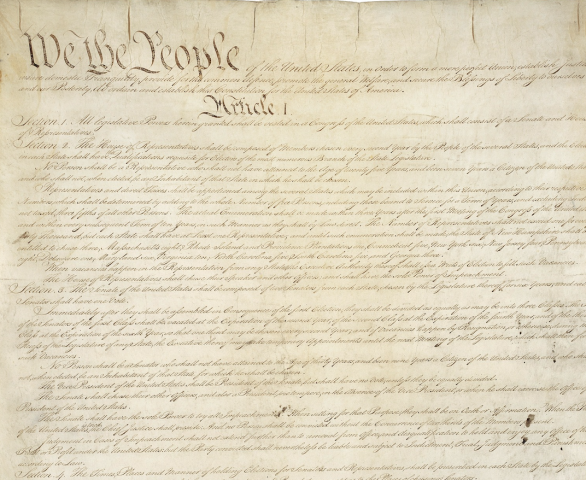 We the People of the United States, in Order to form a more perfect Union, establish Justice,
insure domestic Tranquility, provide for the common defence, promote the general Welfare, and secure the Blessings of Liberty to ourselves
and our Posterity, do ordain and establish this Constitution for the United States of America.
Article I.
Section 1. All legislative Powers herein granted shall be vested in a Congress of the United States, which shall consist of a Senate and House
of Representatives.
Section 2. The House of Representatives shall be composed of Members chosen every second Year by the People of the several States, and the
in each State shall have Qualifications requisite for Electors of the most numerous Branch of the State Legislature.
No Person shall be a Representative who shall not have attained to the Age of twenty five Years, and been seven Years a Citizen of the United
and who shall not, when elected, be an Inhabitant of that State in which he shall be chosen.
Representatives and direct Taxes shall be apportioned among the several States which may be included within this Union, according to their
Numbers, which shall be determined by adding to the whole Number of free Persons, including those bound to Service for a Term of Years, and
not taxed, three fifths of all other Persons. The actual Enumeration shall be made within three Years after the first Meeting of the Congress of the United
Years, in such Manner as they shall by Law direct. The Number of Representatives shall not exceed one for
shall have at Least one Representative; and until such enumeration shall be made, the State of New Hampshire shall
entitled to chuse three, Massachusetts eight, Rhode Island and Providence Plantations one, Connecticut five, New York six, New Jersey four,
eight, Delaware one, Maryland six, Virginia ten, North Carolina five, South Carolina five, and Georgia three.
When vacancies happen in the Representation from any State, the Executive Authority thereof shall issue Writs of Election to fill such Vacancies.
The House of Representatives shall chuse their Speaker and other Officers; and shall have the sole Power of Impeachment.
Section 3. The Senate of the United States shall be composed of two Senators from each State, chosen by the Legislature thereof, for six Years; and
Senator shall have one Vote.
Immediately after they shall be assembled in Consequence of the first Election, they shall be divided as equally as may be into three Classes.
of the Senators of the first Class shall be vacated at the Expiration of the second Year, of the second Class at the Expiration of the fourth Year, and of the
Class at the Expiration of the sixth Year, so that one third may be chosen every second Year; and if Vacancies happen by Resignation, or otherwise,
Recess of the Legislature of any State, the Executive thereof may make temporary Appointments until the next Meeting of the Legislature, which shall then fill
such Vacancies.
No Person shall be a Senator who shall not have attained to the Age of thirty Years, and been nine Years a Citizen of the United States, and who
not, when elected, be an Inhabitant of that State for which he shall be chosen.
The Vice President of the United States shall be President of the Senate, but shall have no Vote, unless they be equally divided.
The Senate shall chuse their other Officers, and also a President pro tempore, in the Absence of the Vice President, or when he shall exercise the Office of
President of the United States.
The Senate shall have the sole Power to try all Impeachments. When sitting for that Purpose, they shall be on Oath or Affirmation. When the
of the United States is tried, the Chief Justice shall preside: And no Person shall be convicted without the Concurrence of two thirds of the Members present.
Judgment in Cases of Impeachment shall not extend further than to removal from Office, and disqualification to hold and enjoy any Office of
Trust or Profit under the United States: but the Party convicted shall nevertheless be liable and subject to Indictment, Trial, Judgment and
according to Law.
Section 4. The Times, Places and Manner of holding Elections for Senators and Representatives, shall be prescribed in each State by the Legislature